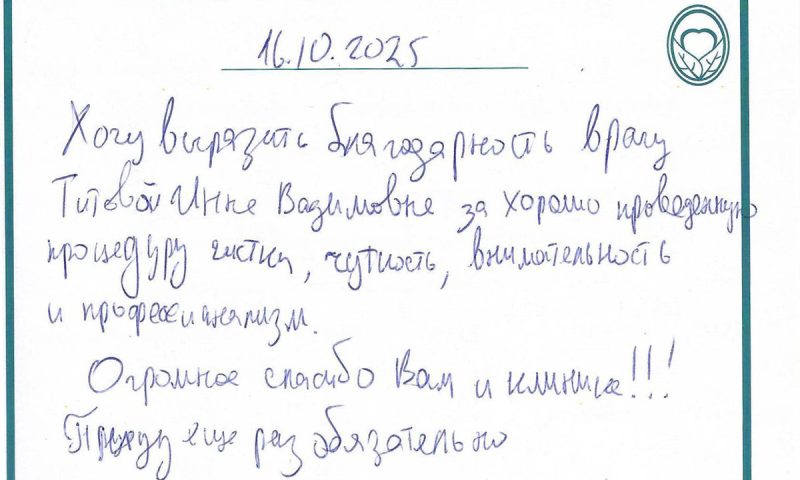 16.10.2025
Хочу выразить благодарность врачу
Титовой Инне Вадимовне за хорошо проведенную
процедуру чистки, чуткость, внимательность
и профессионализм.
Огромное спасибо Вам и клинике!!!
Приду еще раз обязательно